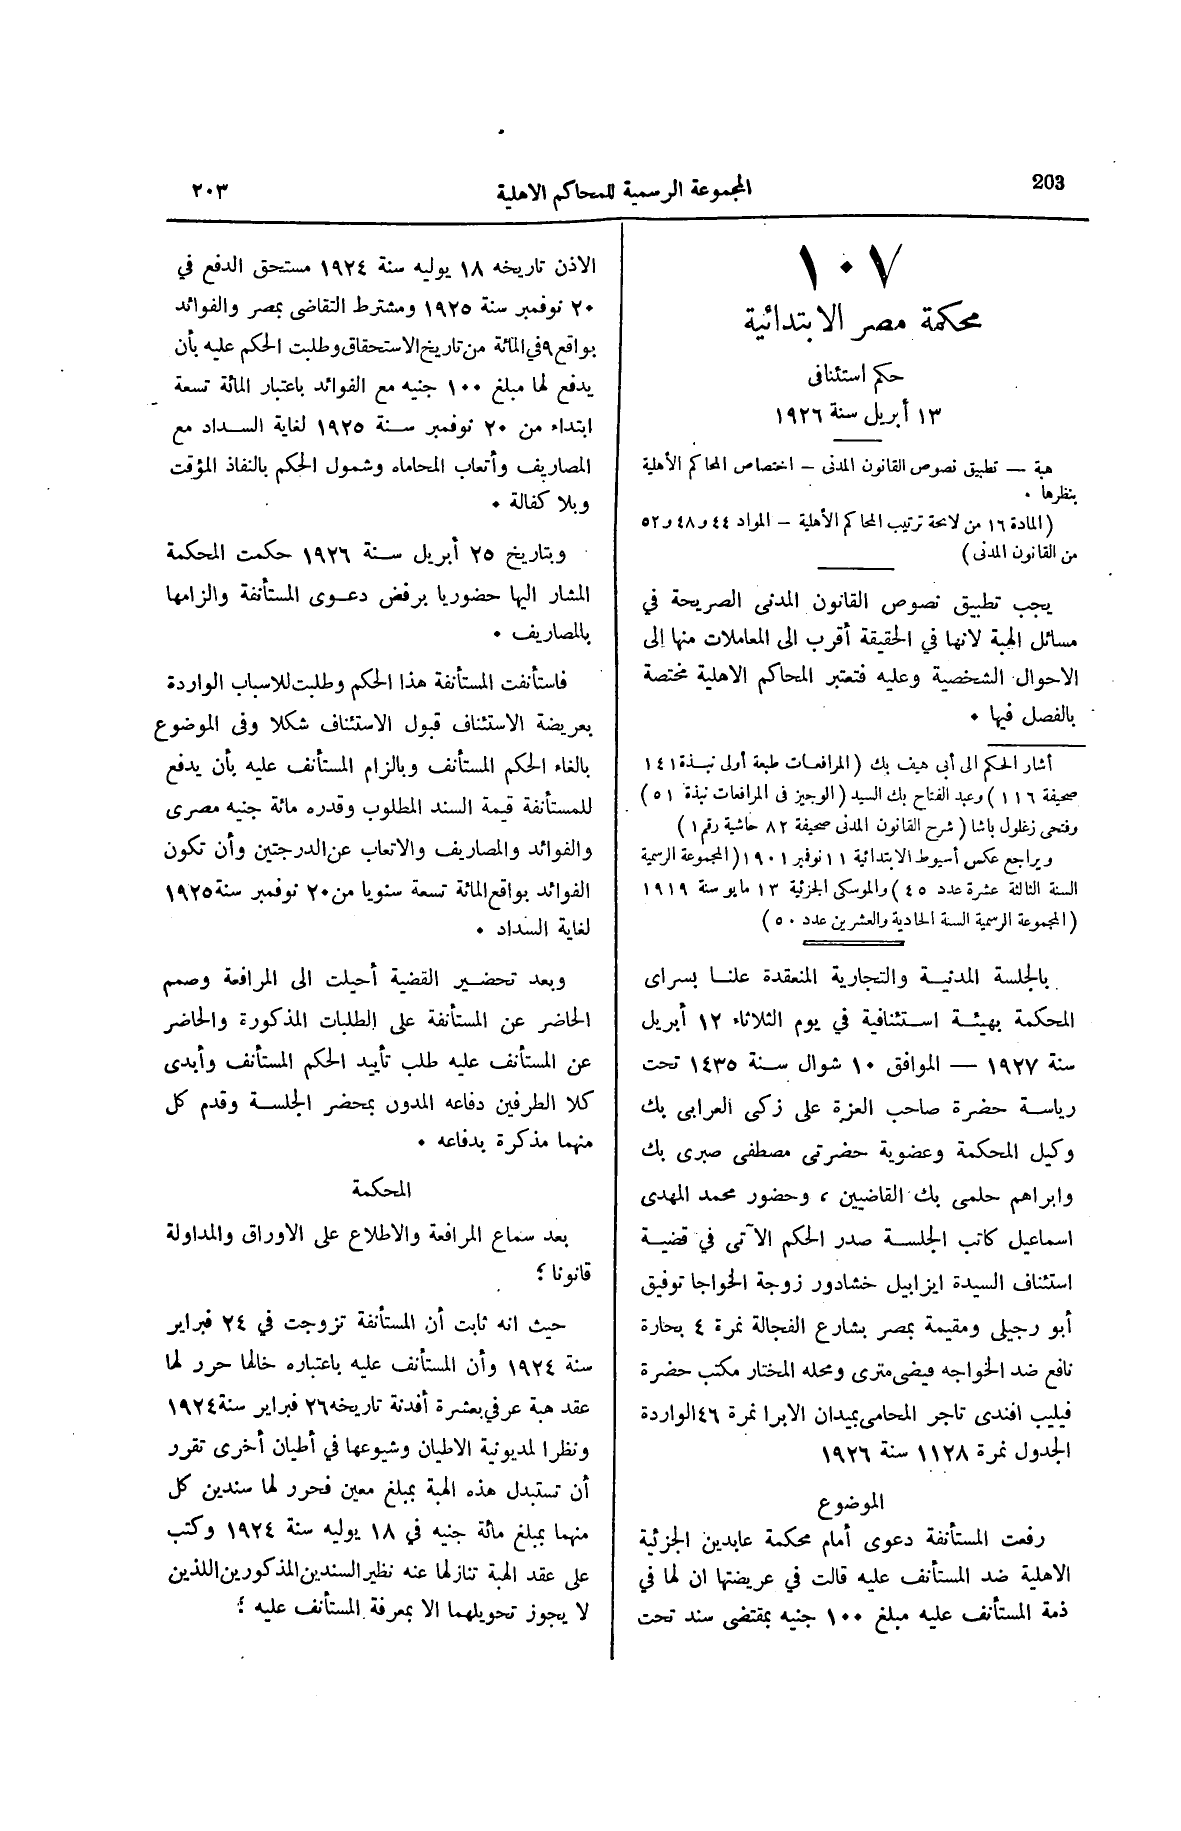 203
المجموعة الرسمية للمحاكم الاهلية
٢٠٣
١٠٧
محكمة مصر الابتدائية
حكم استئنافى
١٣ أبريل سنة ١٩٢٦
هبة — تطبيق نصوص القانون المدنى — اختصاص المحاكم الأهلية
بنظرها .
(المادة ١٦ من لائحة ترتيب المحاكم الأهلية — المواد ٤٤ و ٤٨ و ٥٢
من القانون المدنى)
يجب تطبيق نصوص القانون المدنى الصريحة في
مسائل الهبة لانها في الحقيقة أقرب الى المعاملات منها إلى
الاحوال الشخصية وعليه فتعتبر المحاكم الاهلية مختصة
بالفصل فيها .
أشار الحكم الى أبى هيف بك (المرافعات طبعة أولى نبذة ١٤١
صحيفة ١١٦) وعبد الفتاح بك السيد (الوجيز فى المرافعات نبذة ٥١)
وفتحى زغلول باشا (شرح القانون المدنى صحيفة ٨٢ حاشية رقم ١)
ويراجع عكس أسيوط الابتدائية ١١ نوفمبر ١٩٠١ (المجموعة الرسمية
السنة الثالثة عشرة عدد ٤٥) والموسكى الجزئية ١٣ مايو سنة ١٩١٩
(المجموعة الرسمية السنة الحادية والعشرين عدد ٥٠)
بالجلسة المدنية والتجارية المنعقدة علنا بسراى
المحكمة بهيئة استئنافية في يوم الثلاثاء ١٢ أبريل
سنة ١٩٢٧ — الموافق ١٠ شوال سنة ١٤٣٥ تحت
رياسة حضرة صاحب العزة على زكى العرابى بك
وكيل المحكمة وعضوية حضرتى مصطفى صبرى بك
وابراهم حلمى بك القاضيين ، وحضور محمد المهدى
اسماعيل كاتب الجلسة صدر الحكم الآتى في قضية
استئناف السيدة ايزابيل خشادور زوجة الخواجا توفيق
أبو رجيلى ومقيمة بمصر بشارع الفجالة نمرة ٤ بحارة
نافع ضد الخواجه فيضى مترى ومحله المختار مكتب حضرة
فيليب افندى تاجر المحامى بميدان الابرا نمرة ٤٦ الواردة
الجدول نمرة ١١٢٨ سنة ١٩٢٦
الموضوع
رفعت المستأنفة دعوى أمام محكمة عابدين الجزئية
الاهلية ضد المستأنف عليه قالت في عريضتها ان لها في
ذمة المستأنف عليه مبلغ ١٠٠ جنيه بمقتضى سند تحت
الاذن تاريخه ١٨ يوليه سنة ١٩٢٤ مستحق الدفع في
٢٠ نوفمبر سنة ١٩٢٥ ومشترط التقاضى بمصر والفوائد
بواقع ٩ في المائة من تاريخ الاستحقاق وطلبت الحكم عليه بأن
يدفع لها مبلغ ١٠٠ جنيه مع الفوائد باعتبار المائة تسعة
ابتداء من ٢٠ نوفمبر سنة ١٩٢٥ لغاية السداد مع
المصاريف وأتعاب المحاماه وشمول الحكم بالنفاذ المؤقت
وبلا كفالة .
وبتاريخ ٢٥ أبريل سنة ١٩٢٦ حكمت المحكمة
المشار اليها حضوريا برفض دعوى المستأنفة والزامها
بالمصاريف .
فاستأنفت المستأنفة هذا الحكم وطلبت للاسباب الواردة
بعريضة الاستئناف قبول الاستئناف شكلا وفى الموضوع
بالغاء الحكم المستأنف وبالزام المستأنف عليه بأن يدفع
للمستأنفة قيمة السند المطلوب وقدره مائة جنيه مصرى
والفوائد والمصاريف والاتعاب عن الدرجتين وأن تكون
الفوائد بواقع المائة تسعة سنويا من ٢٠ نوفمبر سنة ١٩٢٥
لغاية السداد .
وبعد تحضير القضية أحيلت الى المرافعة وصمم
الحاضر عن المستأنفة على الطلبات المذكورة والحاضر
عن المستأنف عليه طلب تأييد الحكم المستأنف وأبدى
كلا الطرفين دفاعه المدون بمحضر الجلسة وقدم كل
منهما مذكرة بدفاعه .
المحكمة
بعد سماع المرافعة والاطلاع على الاوراق والمداولة
قانونا ؛
حيث انه ثابت أن المستأنفة تزوجت في ٢٤ فبراير
سنة ١٩٢٤ وأن المستأنف عليه باعتباره خالها حرر لها
عقد هبة عرفي بعشرة أفدنة تاريخه ٢٦ فبراير سنة ١٩٢٤
ونظرا لمديونية الاطيان وشيوعها في أطيان أخرى تقرر
أن تستبدل هذه الهبة بمبلغ معين فحرر لها سندين كل
منهما بمبلغ مائة جنيه في ١٨ يوليه سنة ١٩٢٤ وكتب
على عقد الهبة تنازلها عنه نظير السندين المذكورين اللذين
لا يجوز تحويلهما الا بمعرفة المستأنف عليه ؛